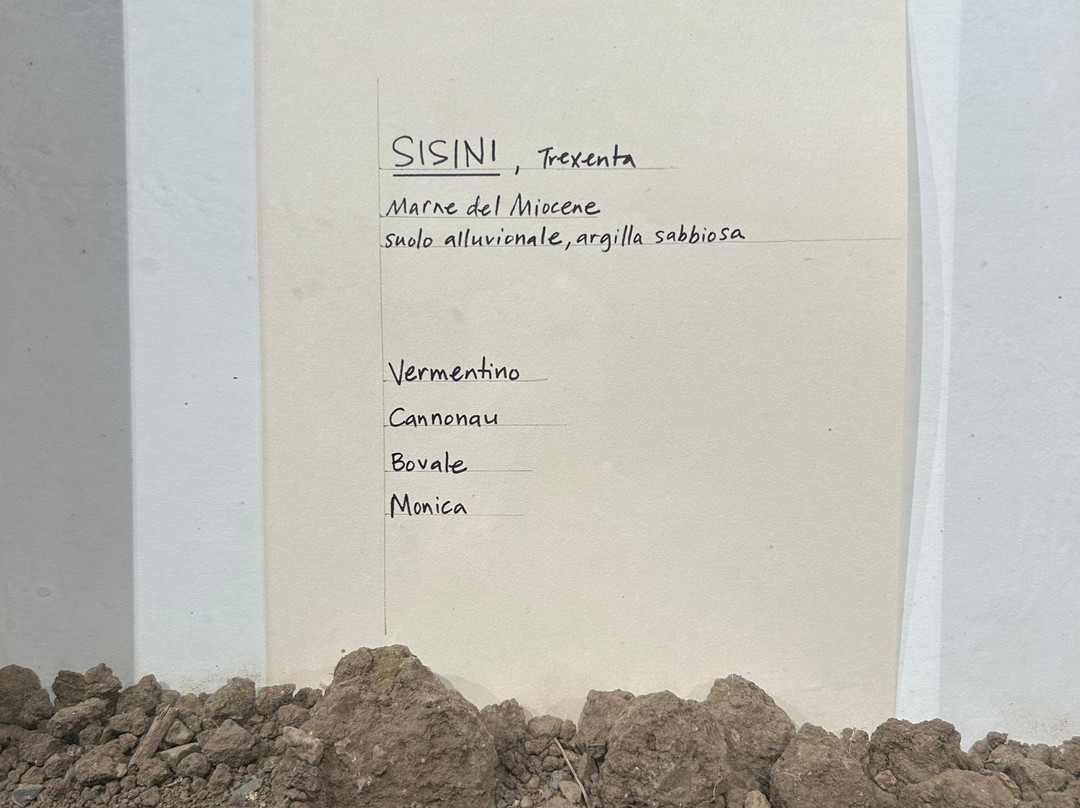 SISINI, Trexenta
Marne del Miocene
suolo alluvionale, argilla sabbiosa
Vermentino
Cannonau
Bovale
Monica